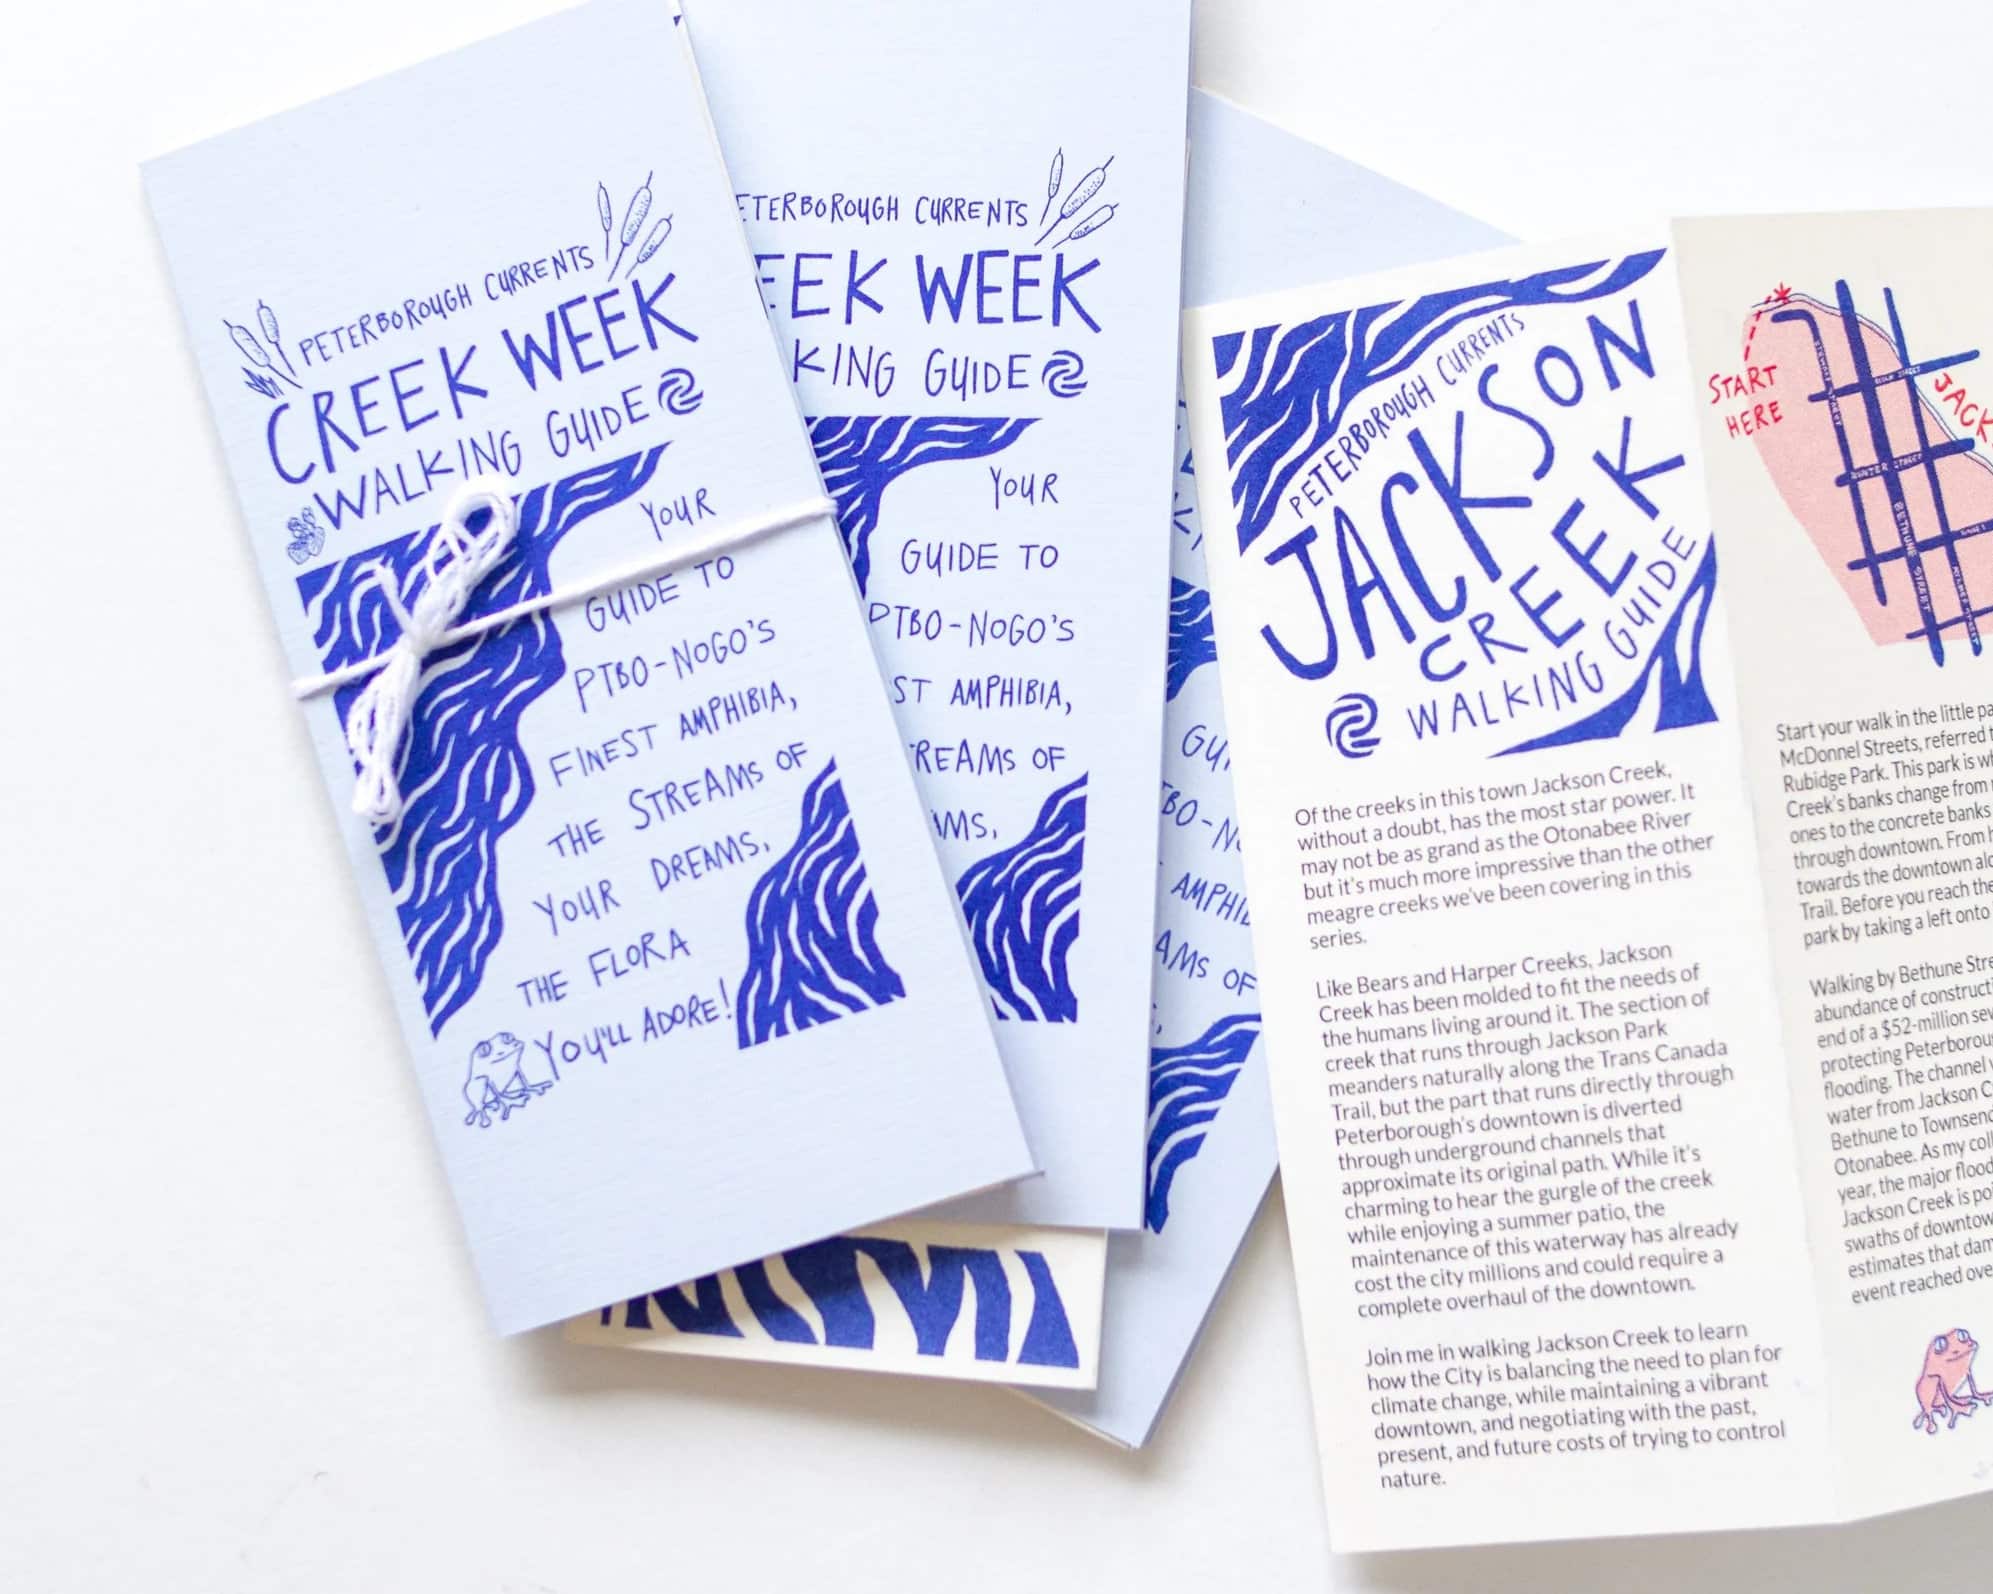 PETERBOROUGH CURRENTS
CREEK WEEK
WALKING GUIDE
YOUR
GUIDE TO
PTBO-NOGO'S
FINEST AMPHIBIA,
THE STREAMS OF
YOUR DREAMS,
THE FLORA
YOU'LL ADORE!
ETERBOROUGH CURRENTS
EEK WEEK
KING GUIDE
YOUR
GUIDE TO
PTBO-NOGO'S
ST AMPHIBIA,
REAMS OF
AMS,
GUI
BO-N
AMPHIB
AMS OF
PETERBOROUGH CURRENTS
JACKSON
CREEK
WALKING GUIDE
Of the creeks in this town Jackson Creek,
without a doubt, has the most star power. It
may not be as grand as the Otonabee River
but it's much more impressive than the other
meagre creeks we've been covering in this
series.
Like Bears and Harper Creeks, Jackson
Creek has been molded to fit the needs of
the humans living around it. The section of
creek that runs through Jackson Park
meanders naturally along the Trans Canada
Trail, but the part that runs directly through
Peterborough's downtown is diverted
through underground channels that
approximate its original path. While it's
charming to hear the gurgle of the creek
while enjoying a summer patio, the
maintenance of this waterway has already
cost the city millions and could require a
complete overhaul of the downtown.
Join me in walking Jackson Creek to learn
how the City is balancing the need to plan for
climate change, while maintaining a vibrant
downtown, and negotiating with the past,
present, and future costs of trying to control
nature.
START
HERE
JACK
STEWART STREET
BETHUNE STREET
Start your walk in the little pa
McDonnel Streets, referred t
Rubidge Park. This park is wh
Creek's banks change from
ones to the concrete banks
through downtown. From h
towards the downtown alo
Trail. Before you reach the
park by taking a left onto
Walking by Bethune Stre
abundance of constructi
end of a $52-million sew
protecting Peterborou
flooding. The channel
water from Jackson C
Bethune to Townsend
Otonabee. As my coll
year, the major flood
Jackson Creek is poi
swaths of downtow
estimates that dam
event reached over